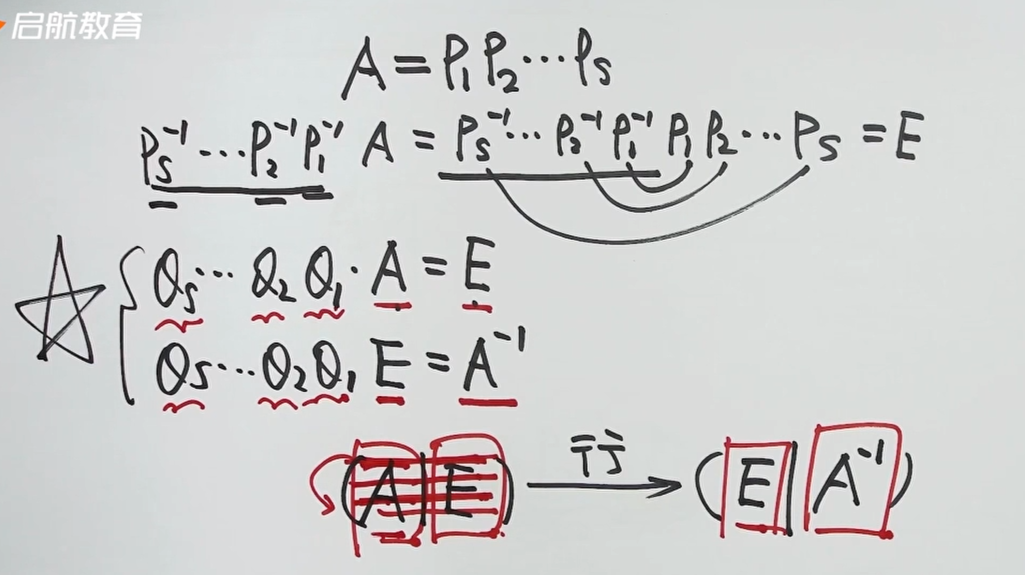 启航教育
A = P₁P₂…Pₛ
Pₛ⁻¹…P₂⁻¹P₁⁻¹ A = Pₛ⁻¹…P₂⁻¹P₁⁻¹P₁P₂…Pₛ = E
Qₛ…Q₂Q₁·A = E
Qₛ…Q₂Q₁E = A⁻¹
(A|E) 行→ (E|A⁻¹)